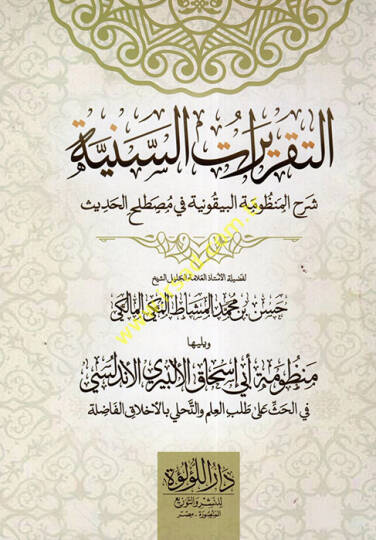 التقريرات السنية
شرح المنظومة البيقونية في مصطلح الحديث
لفضيلة الأستاذ العلامة الجليل الشيخ
حسن بن محمد المشاط المكي المالكي
ويليها
منظومة أبي إسحاق الألبيري الأندلسي
في الحث على طلب العلم والتحلي بالأخلاق الفاضلة
دار اللؤلؤة
للنشر والتوزيع
المنصورة - مصر